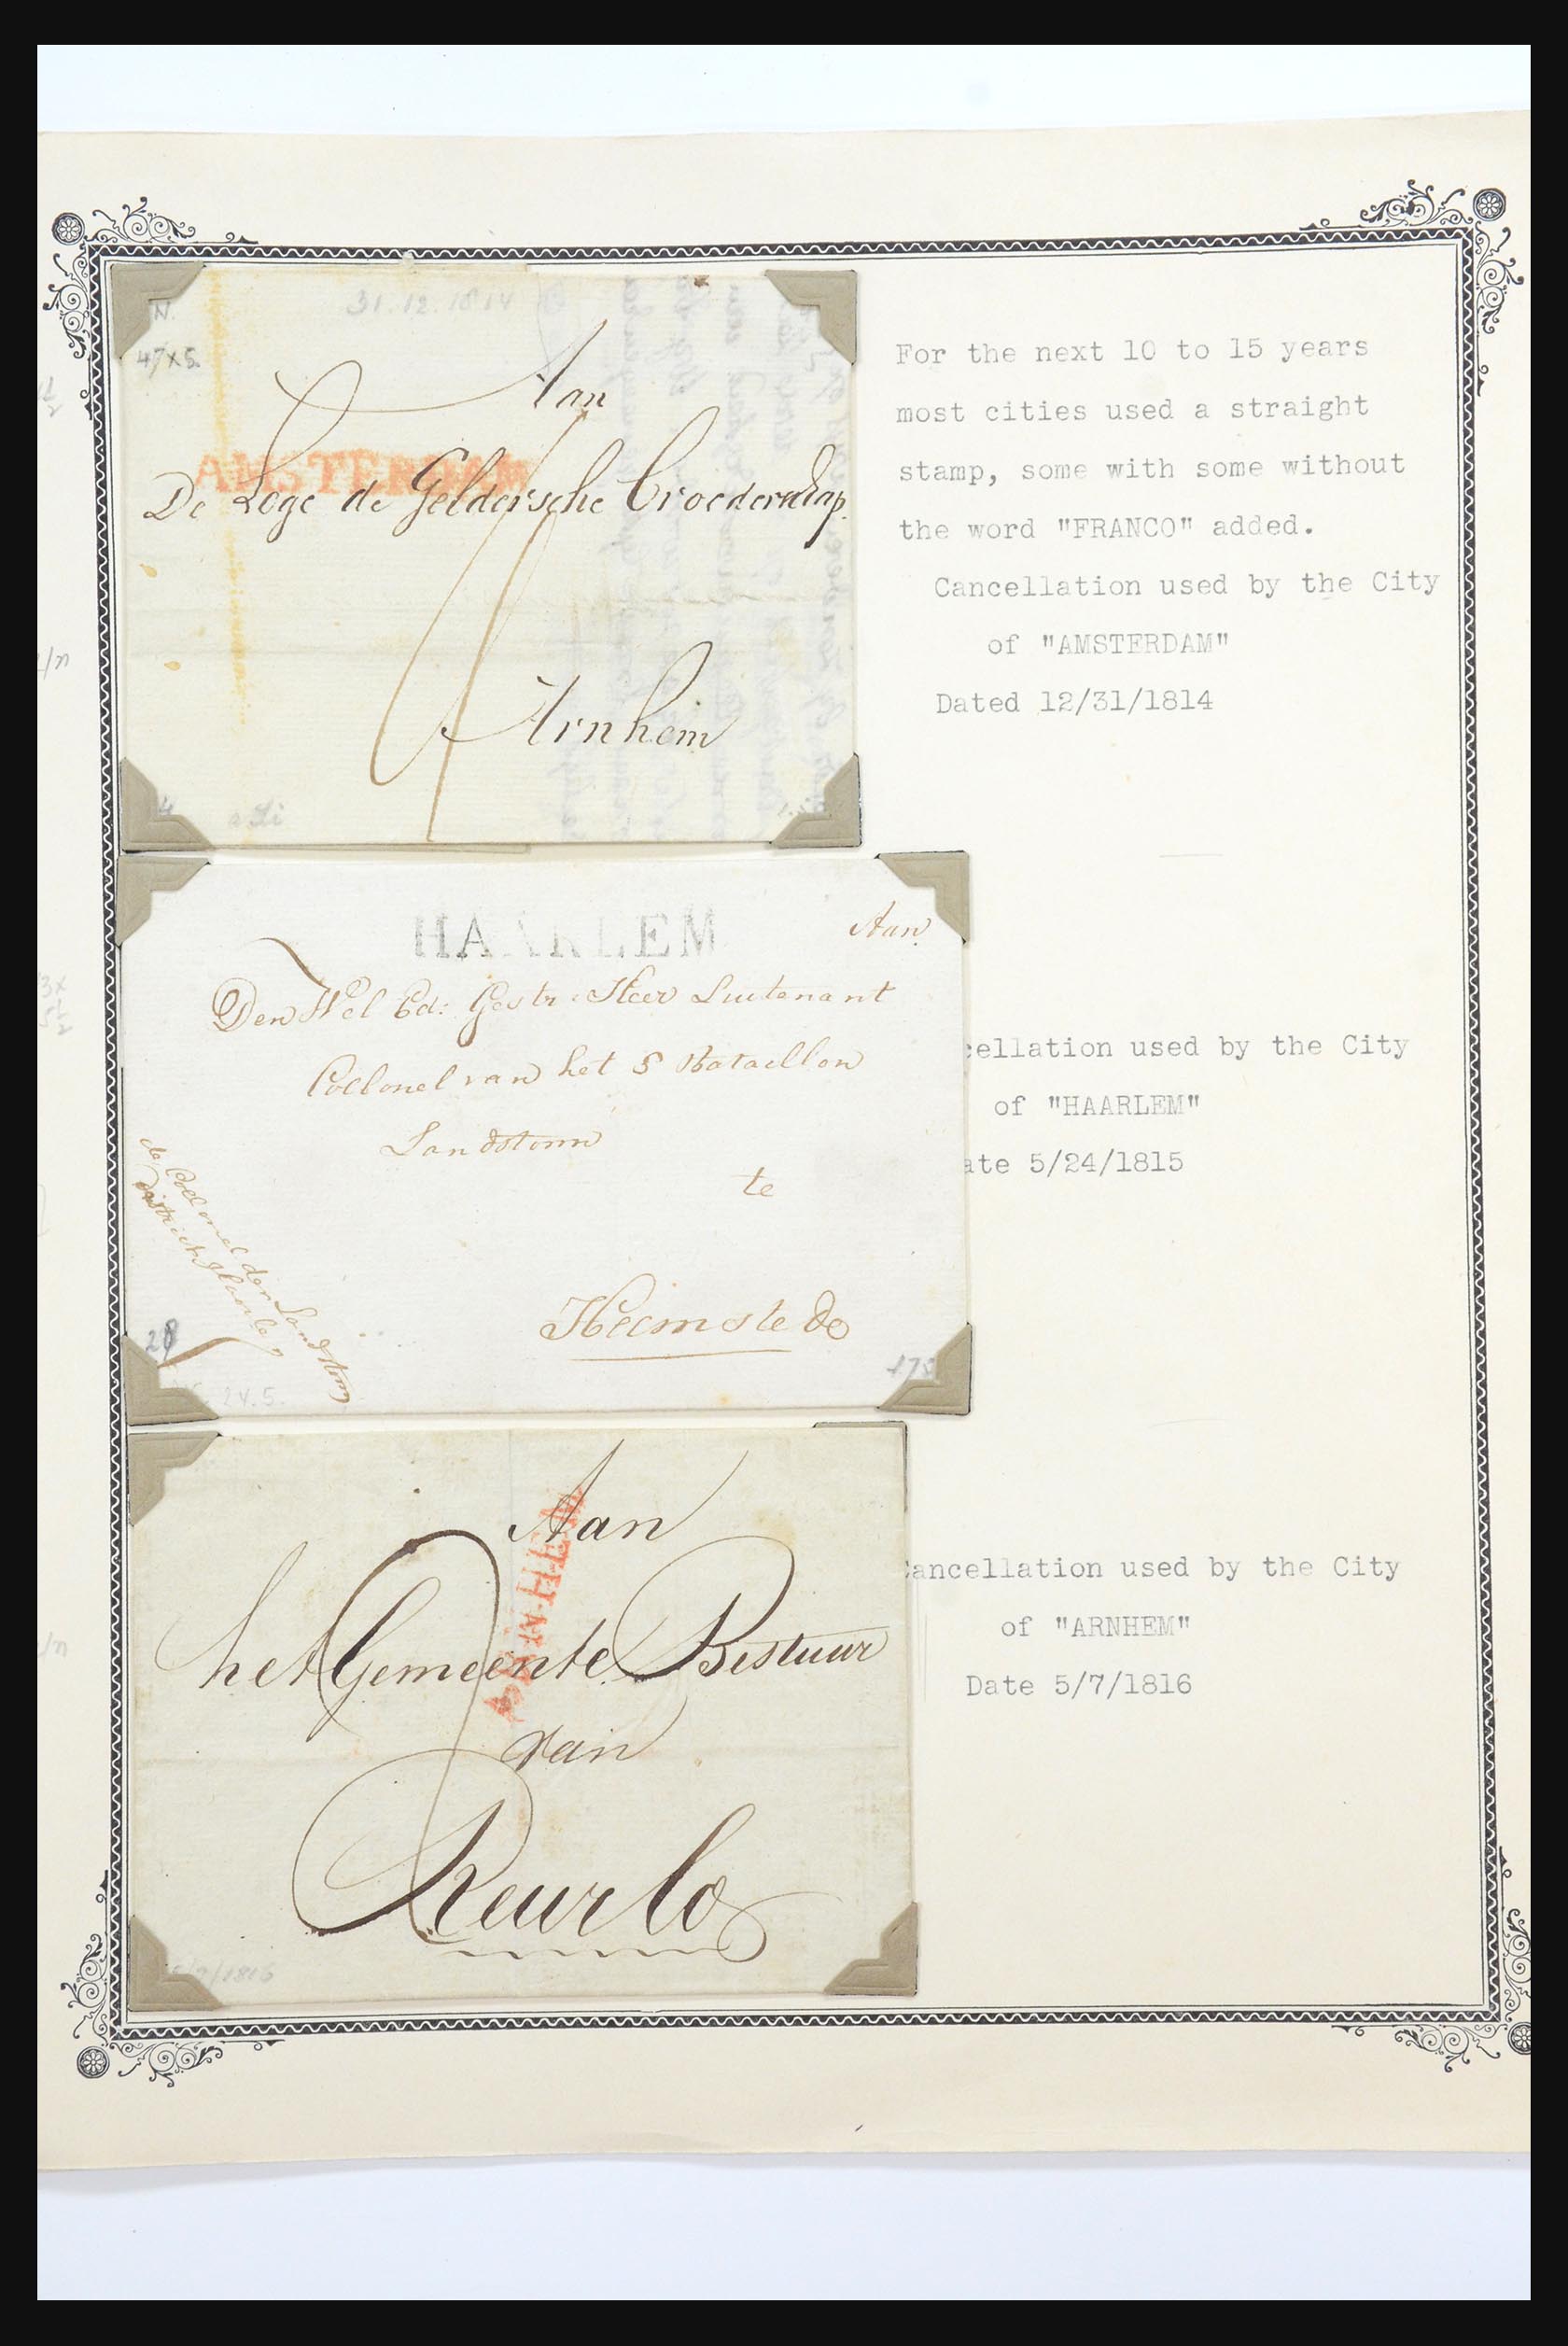 31.12.1814
N.
47x5.
Aan
AMSTERDAM
De Loge de Geldersche broederschap
Arnhem
For the next 10 to 15 years
most cities used a straight
stamp, some with some without
the word "FRANCO" added.
Cancellation used by the City
of "AMSTERDAM"
Dated 12/31/1814
HAARLEM
Aan
Den Wel Ed: Gestr: Heer Luitenant
Collonel van het 8 Bataillon
Landstorm
te
Heemstede
de Collonel der Landstorm
District Haarlem
28
24.5.
175
cellation used by the City
of "HAARLEM"
ate 5/24/1815
Aan
ARNHEM
het Gemeente Bestuur
van
Reurlo
5/7/1816
Cancellation used by the City
of "ARNHEM"
Date 5/7/1816